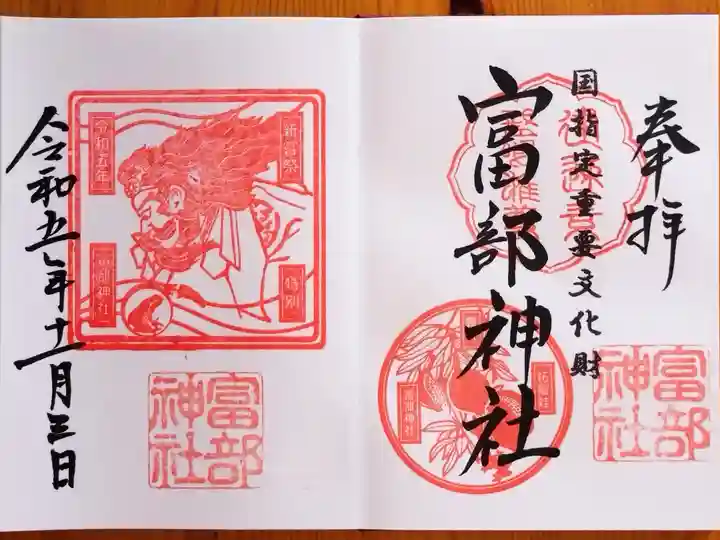 奉拝
国指定重要文化財
富部神社
富部神社
令和五年十一月三日
新嘗祭
令和五年
特別
富部神社